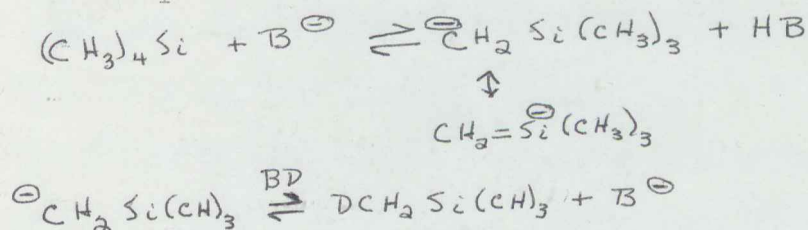 (CH₃)₄Si + B⊖ ⇌ ⊖CH₂ Si(CH₃)₃ + HB
↕
CH₂=Si⊖(CH₃)₃
⊖CH₂Si(CH)₃ BD ⇌ DCH₂Si(CH)₃ + B⊖